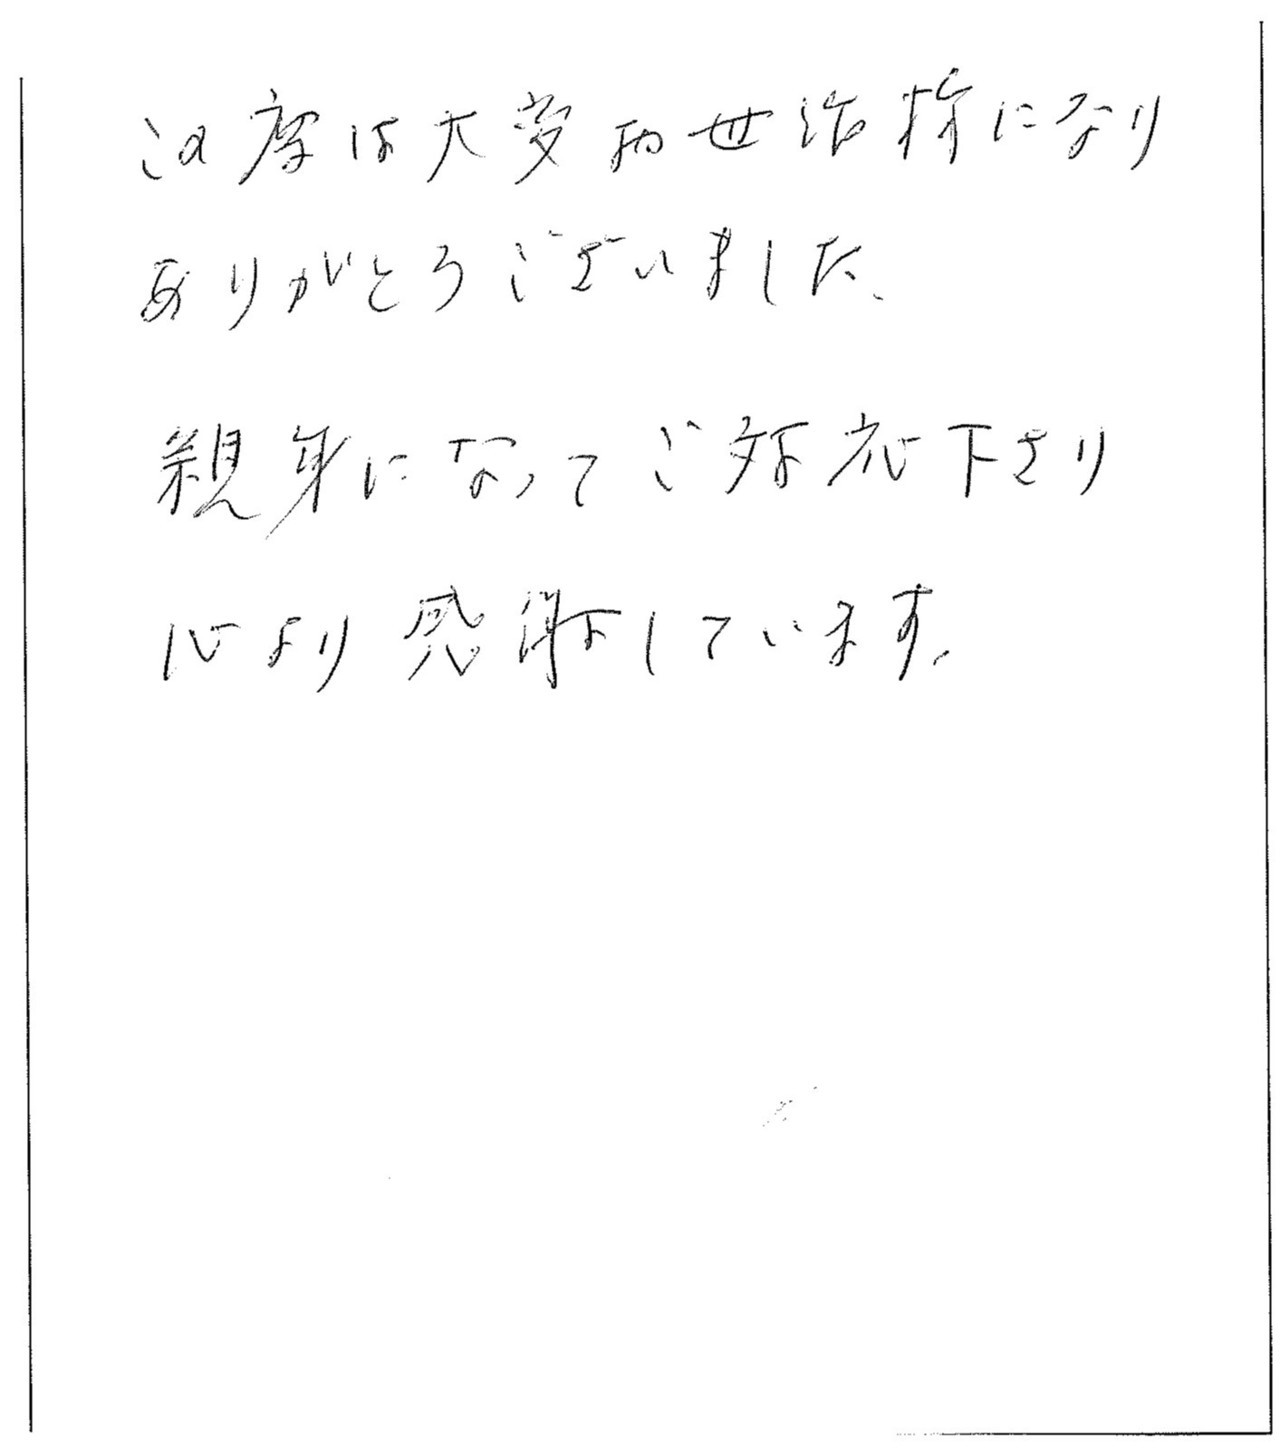 この度は大変お世話様になり
ありがとうございました、
親身になってご対応下さり
心より感謝しています。